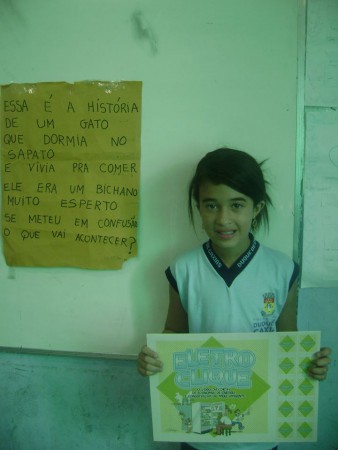 ESSA É A HISTÓRIA
DE UM GATO
QUE DORMIA NO
SAPATO
E VIVIA PRA COMER
ELE ERA UM BICHANO
MUITO ESPERTO
SE METEU EM CONFUSÃO
O QUE VAI ACONTECER?
DUQUE
DUQUE
ELETRO
CLIQUE